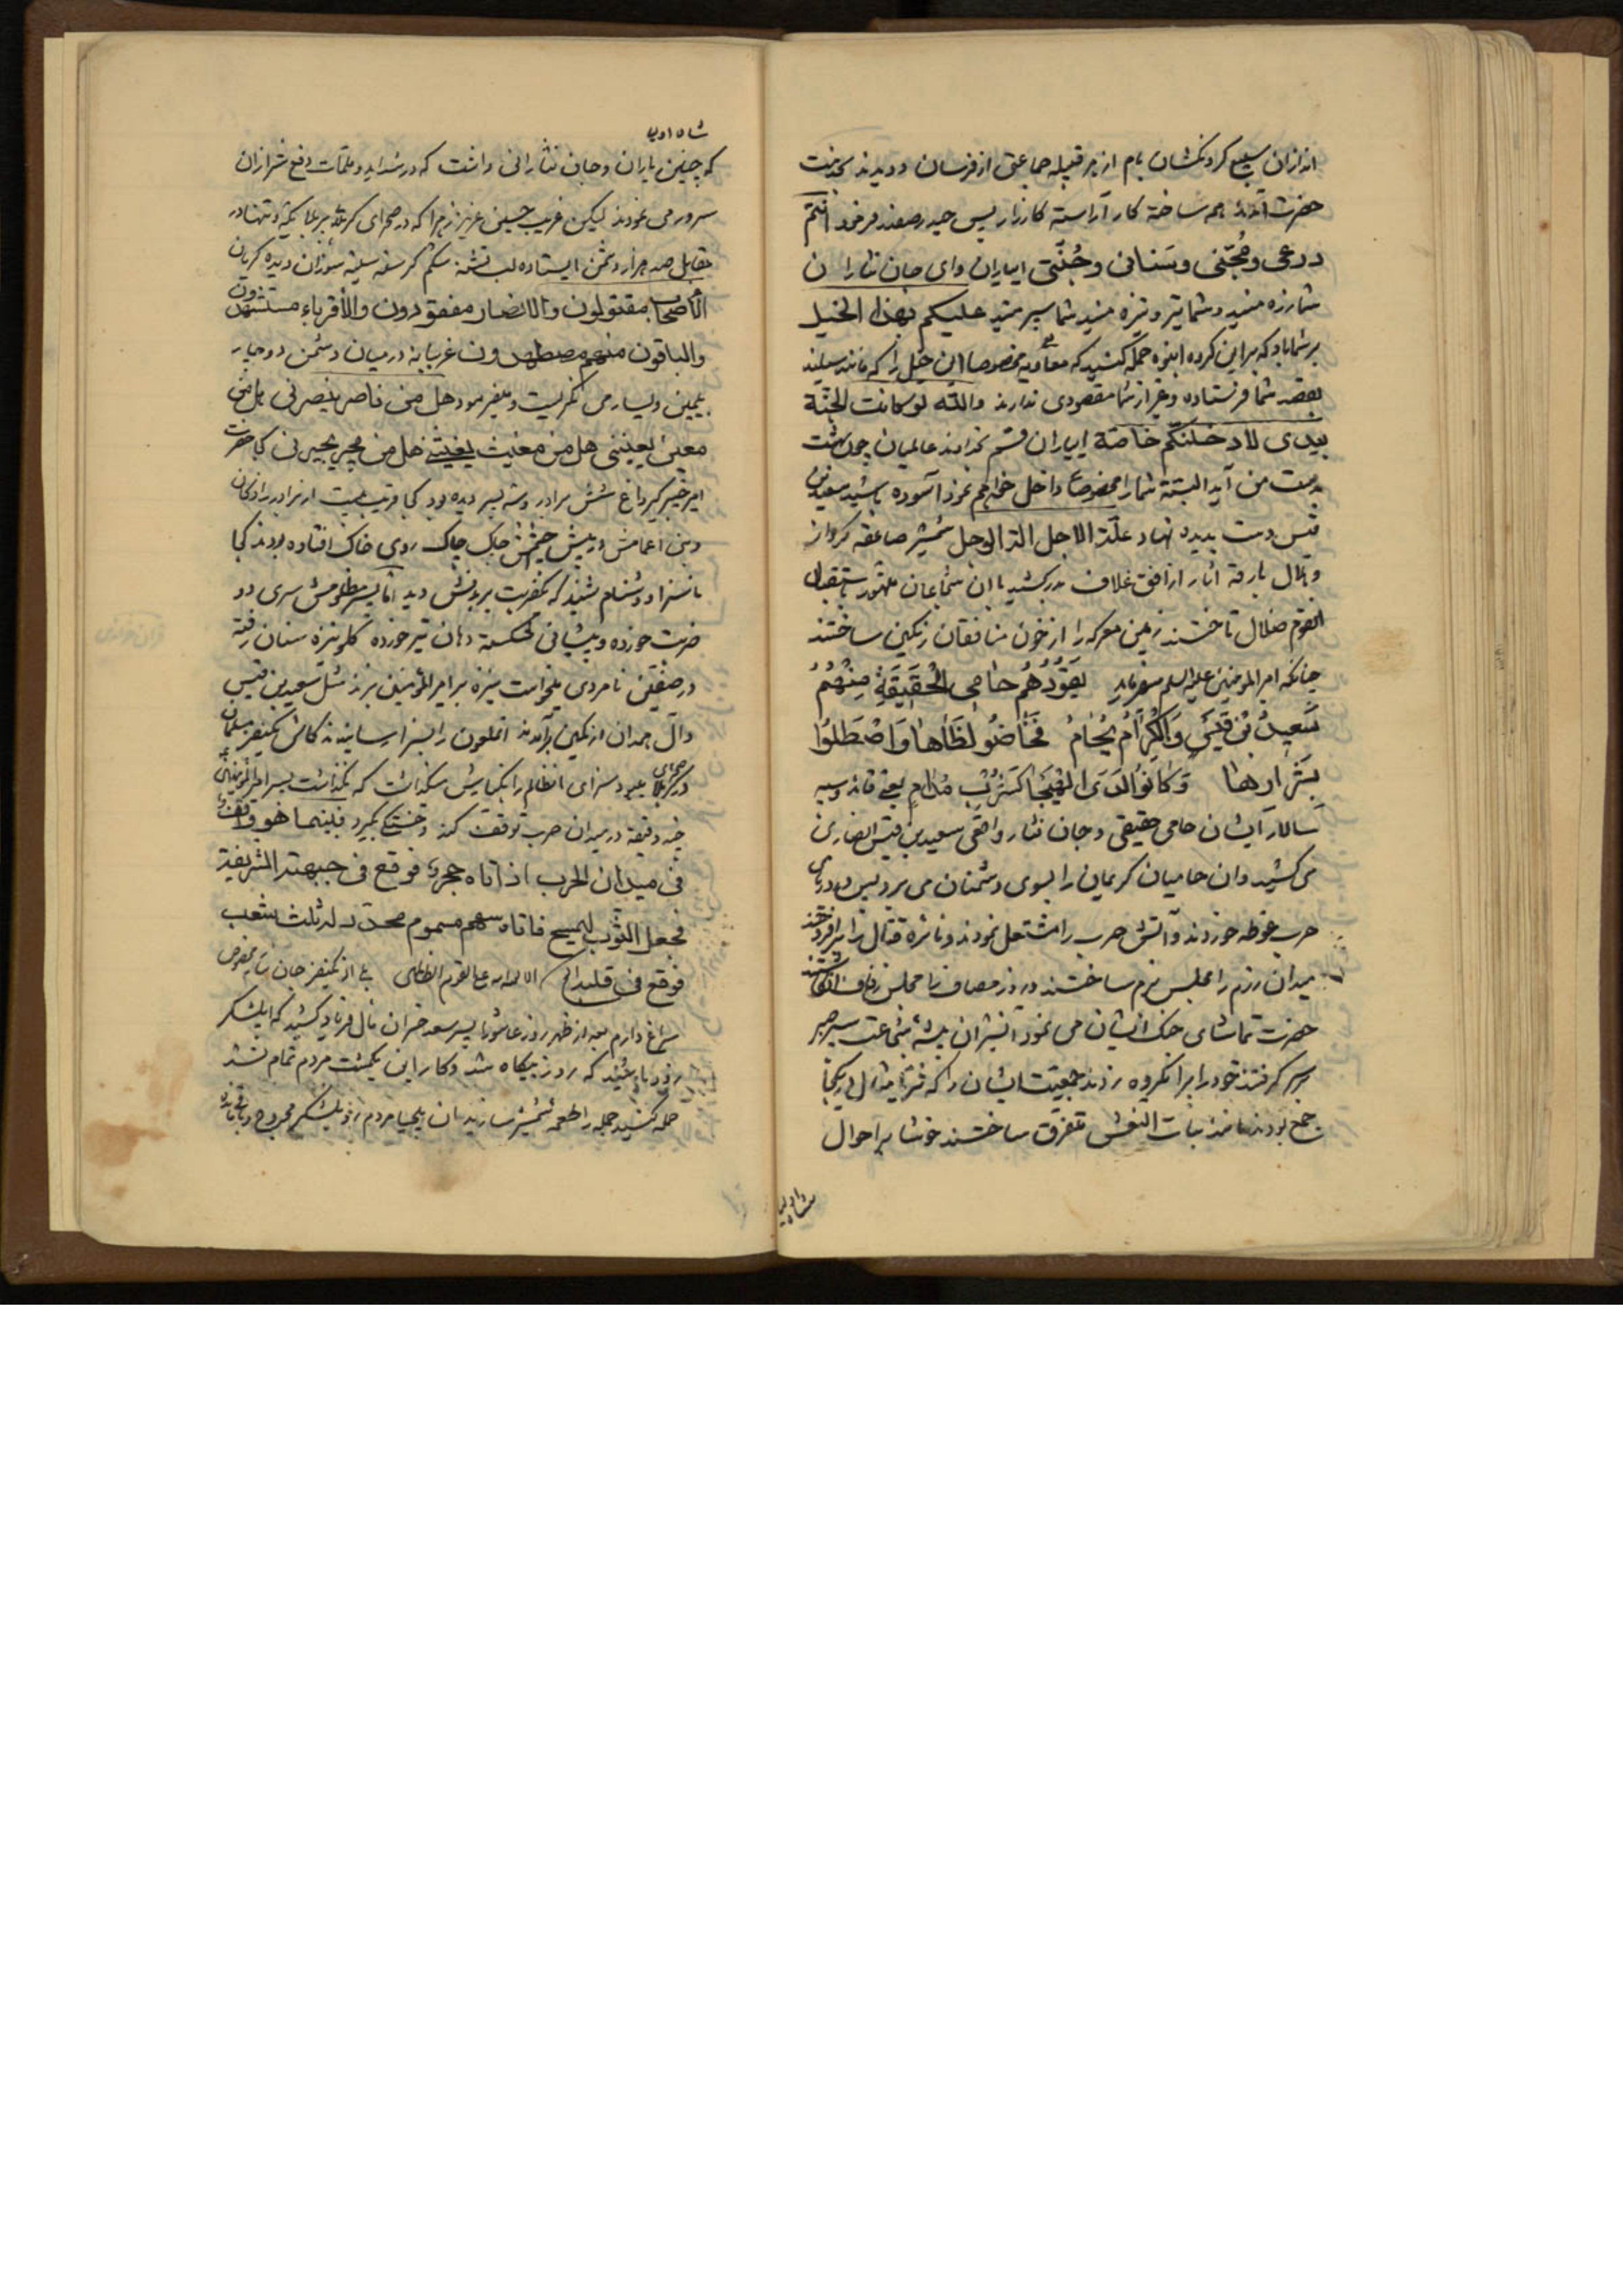 حضرت آمدند همه ساخته کار آراسته کارزار پس حیدر صفدر فرمود انتم
درعی و مُجنّی و سنانی و جُنّتی ای یاران وای جان نثاران
شما زره منید و شما تیر و نیزه منید شما سپر منید علیکم بهذا الخیل
بر شما باد که بر این کرده انبوه حمله کنید که معاویه مخصوصا این خیل را که مانند سیلند
بقصد شما فرستاده و غیر از شما مقصودی ندارند والله لو کانت الجنّة
بیدی لادخلنکم خاصّة ای یاران قسم بخداوند عالمیان چون بهشت
بدست من آید البته شما را مخصوصا داخل خواهم نمود آسوده باشید سعید بن
قیس دست بدیده نهاد شمشیر صاعقه کردار
القوم ضلال تاختند زمین معرکه را از خون منافقان رنگین ساختند
چنانکه امیر المؤمنین علیه السلم میفرماید یَقُودُهُم حامی الْحَقیقَةِ مِنْهُمُ
سَعیدُ بْنُ قَیْسٍ وَالْکِرامُ یُحامُ فَخاضُوا لَظاها وَاصْطَلَوْا
بِشَرارِها وَکانُوا لَدَی الْهَیْجا کَشَرْبِ مُدامِ یعنی قائد و سپه
سالار ایشان حامی حقیقی و جان نثار واقعی سعید بن قیس انصاری
می کشید وان حامیان کریمان را بسوی دشمنان می برد پس در دریای
حرب غوطه خوردند و آتش حرب را مشتعل نمودند و نائره قتال را برافروختند
میدان رزم را مجلس بزم ساختند و روز مصاف را مجلس زفاف انگاشتند
حضرت تماشای جنک ایشان می نمود آن شیران بیشه شجاعت سپر صبر
بر سر کرفتند خود را بر آنکروه زدند جمعیت ایشان را که ثریا مثال در یکجا
جمع بودند مانند بنات النعش متفرق ساختند خوشا بر احوال
شاه اولیا
شاه اولیا
که چنین یاران و جان نثارانی داشت که در شداید و ملمّات دفع شر از ان
سرور می نمودند لیکن غریب حسین عزیز زهرا که در صحرای کربلا یکّه و تنها در
مقابل صد هزار دشمن ایستاده لب تشنه شکم کرسنه سینه سوزان دیده کریان
الأصحاب مقتولون والانصار مفقودون والأقرباء مستشهدون
والباقون منهم مضطهدون غریبانه در میان دشمن دوچار
یمین و یسار می نکریست و میفرمود هل من ناصر ینصرنی هل من
معین یعیننی هل من مغیث یغیثنی هل من مجیر یجیرنی کجا حضرت
امیر خیبر کیر داغ شش برادر و سه پسر دیده بود کجا قریب بیست از برادرزادکان
و بنی اعمامش در پیش چشمش چاک چاک روی خاک افتاده بودند کجا
ناسزا و دشنام شنید که یکضربت بر بدنش دید اما پسر مظلومش سری دو
ضربت خورده و پیشانی شکسته دهان تیر خورده
در صفّین نامردی میخواست نیزه بر امیر المؤمنین بزند مثل سعید بن قیس
و آل همدان از کمین برآمدند آنملعون را بسزا رسانیدند کاش یکنفر مسلمان
در صحرای کربلا میبود سزای انظالم را بکنارش میکذاشت که نکذاشت پسر امیر المؤمنین
چند دقیقه در میدان حرب توقف کند و خستکی بکیرد فبینما هو واقف
فی میدان الحرب اذ اتاه حجر فوقع فی جبهته الشریفة
فجعل الثوب لیمسح فاتاه سهم مسموم محدّد له ثلث شعب
فوقع فی قلبه الخ الا لعنة الله علی القوم الظالمین
بعد از ظهر روز عاشورا پسر سعد خسران مآل فریاد کشید که ایلشکر
زود باشید که روز بیکاه شد و کار این یکمشت مردم تمام نشد
حمله کنید جمله را طعمه شمشیر سازید